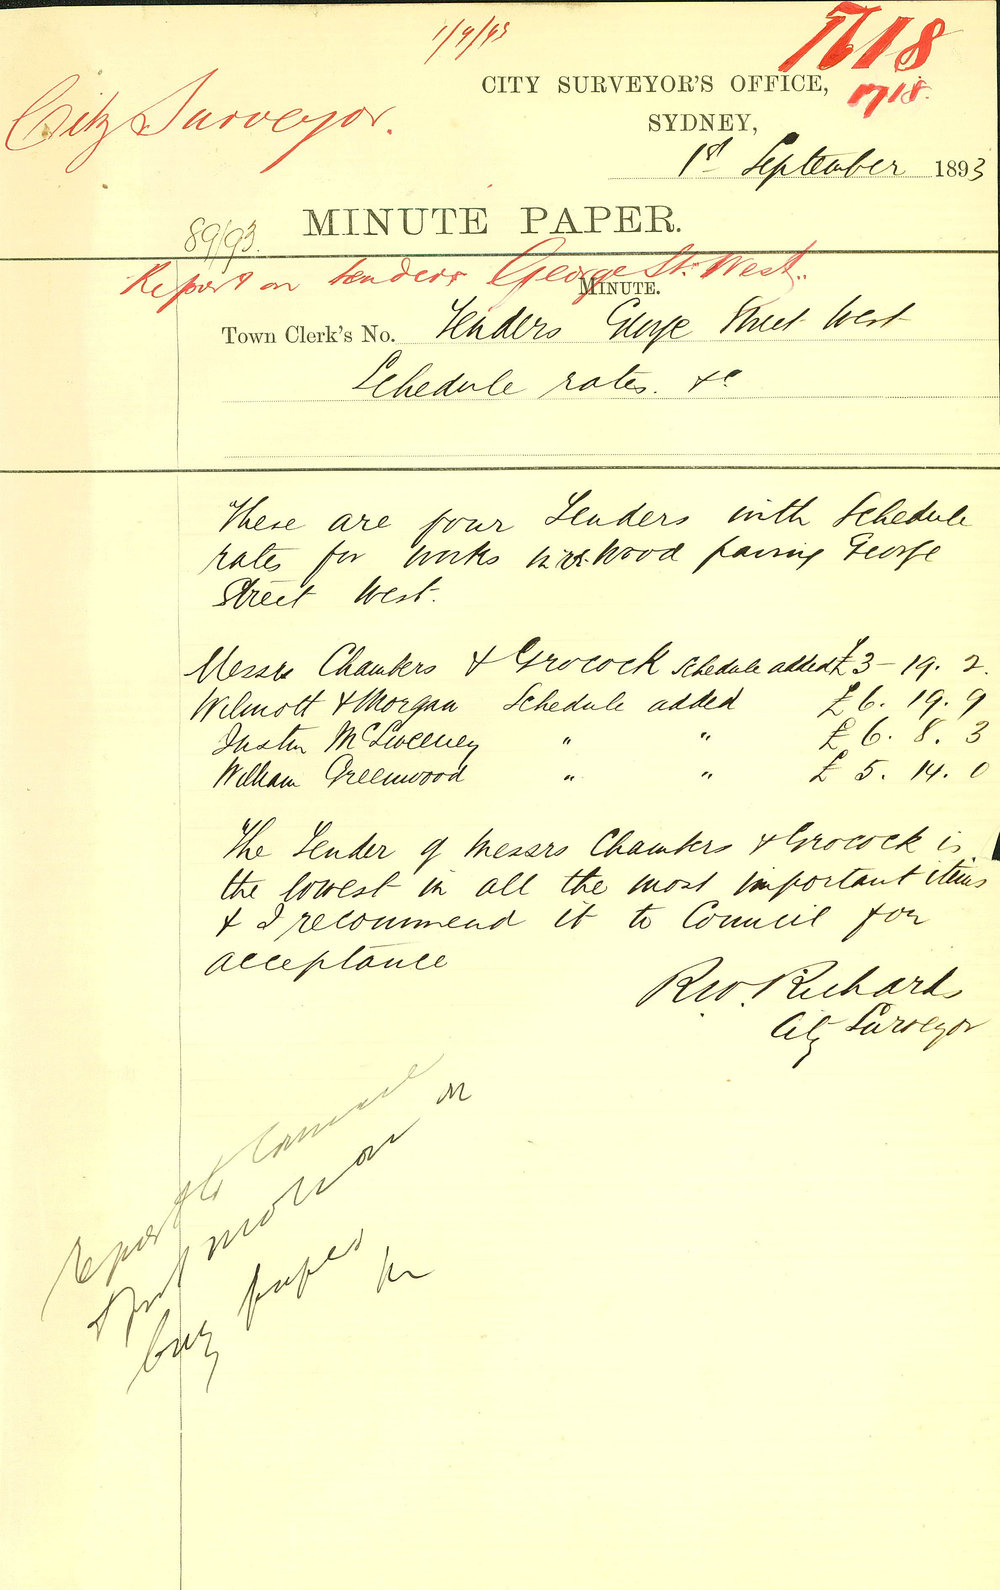 1/9/93
1618
1718.
City Surveyor.
CITY SURVEYOR'S OFFICE,
SYDNEY,
1st September 1893
89/93.
MINUTE PAPER.
Report on tenders George St. West.
MINUTE.
Town Clerk's No. Tenders George Street West
Schedule rates. &c
These are four Tenders with Schedule
rates for works Wood paving George
Street West.
Messrs Chambers & Grocock Schedule added £3-19. 2.
Wilmott & Morgan Schedule added £6. 19. 9
Justin McSweeney " " £6. 8. 3
William Greenwood " " £5. 14. 0
The Tender of Messrs Chambers & Grocock is
the lowest in all the most important items
& I recommend it to Council for
acceptance
R.W. Richards
City Surveyor
report to Council
& put motion on
bus paper